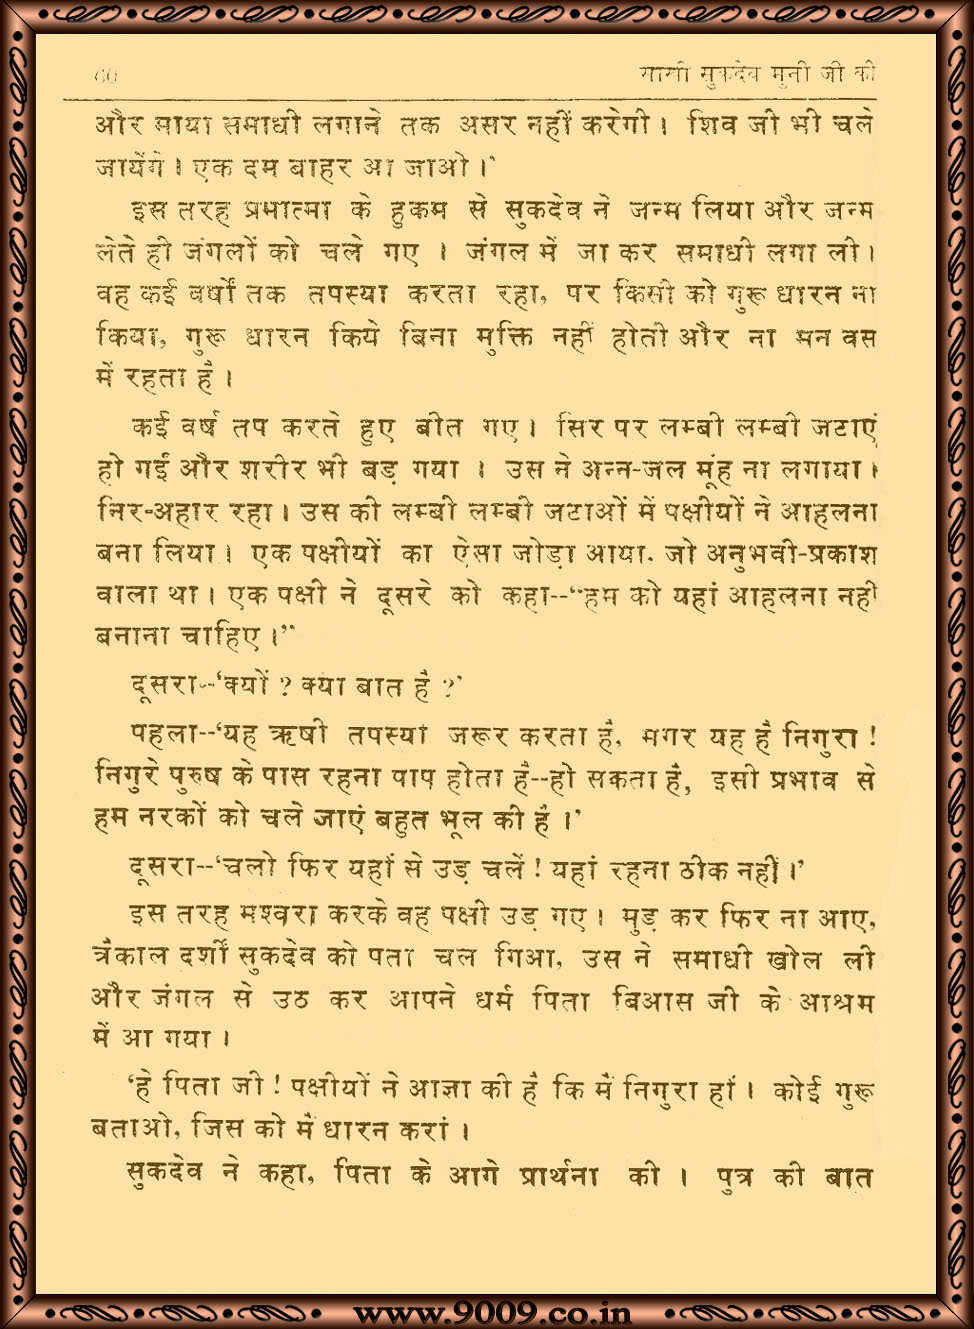 60 साखी सुकदेव मुनी जी की
और माया समाधी लगाने तक असर नहीं करेगी। शिव जी भी चले
जायेंगे। एक दम बाहर आ जाओ।'
इस तरह प्रमात्मा के हुकम से सुकदेव ने जन्म लिया और जन्म
लेते ही जंगलों को चले गए । जंगल में जा कर समाधी लगा ली।
वह कई वर्षों तक तपस्या करता रहा, पर किसी को गुरू धारन ना
किया, गुरू धारन किये बिना मुक्ति नहीं होती और ना मन वस
में रहता है।
कई वर्ष तप करते हुए बीत गए। सिर पर लम्बी लम्बी जटाएं
हो गईं और शरीर भी बड़ गया । उस ने अन्न-जल मूंह ना लगाया।
निर-अहार रहा। उस की लम्बी लम्बी जटाओं में पक्षीयों ने आहलना
बना लिया। एक पक्षीयों का ऐसा जोड़ा आया. जो अनुभवी-प्रकाश
वाला था। एक पक्षी ने दूसरे को कहा--“हम को यहां आहलना नहीं
बनाना चाहिए।”
दूसरा--‘क्यों ? क्या बात है ?’
पहला--‘यह ऋषी तपस्या जरूर करता है, मगर यह है निगुरा !
निगुरे पुरुष के पास रहना पाप होता है--हो सकता है, इसी प्रभाव से
हम नरकों को चले जाएं बहुत भूल की है।’
दूसरा--‘चलो फिर यहां से उड़ चलें ! यहां रहना ठीक नहीं।’
इस तरह मश्वरा करके वह पक्षी उड़ गए। मुड़ कर फिर ना आए,
त्रैकाल दर्शी सुकदेव को पता चल गिआ, उस ने समाधी खोल ली
और जंगल से उठ कर आपने धर्म पिता बिआस जी के आश्रम
में आ गया।
‘हे पिता जी ! पक्षीयों ने आज्ञा की है कि मैं निगुरा हां। कोई गुरू
बताओ, जिस को मैं धारन करां।
सुकदेव ने कहा, पिता के आगे प्रार्थना की । पुत्र की बात
www.9009.co.in